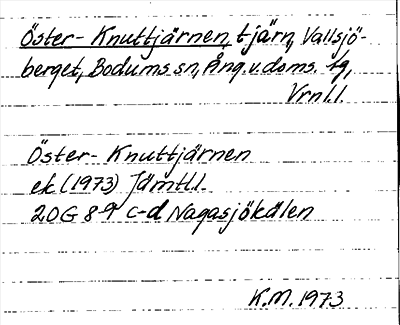 Öster-Knuttjärnen, tjärn, Vallsjö-
berget, Bodums sn, Ång.v.doms. tg,
Vrnl.l.
Öster-Knuttjärnen
ek (1973) Jämtl.l.
20G 8-9 c-d Nagasjökälen
K.M. 1973